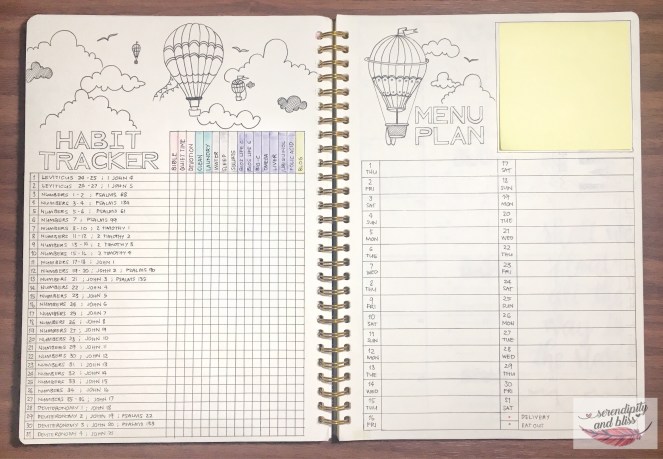 HABIT
TRACKER
BIBLE
QUIET TIME
DEVOTION
CLEAN
LAUNDRY
WATER
SLEEP
OMEGA
LIVER
FOLIC ACID
BLOG
1 LEVITICUS 24 - 25 ; 1 JOHN 4
2 LEVITICUS 26 - 27 ; 1 JOHN 5
3 NUMBERS 1 - 2 ; PSALMS 68
4 NUMBERS 3 - 4 ; PSALMS
5 NUMBERS 5 - 6 ; PSALMS 61
6 NUMBERS 7 ; PSALMS
NUMBERS 8 - 10 ; 2 TIMOTHY 1
8 NUMBERS 11 - 12 ; 2 TIMOTHY 2
9 NUMBERS 13 - ; 2 TIMOTHY 3
10 NUMBERS 15 - 16 ; 2 TIMOTHY 4
11 NUMBERS 17 - 18 ; JOHN 1
12 NUMBERS 19 - 20 ; JOHN 2 ; PSALMS 90
13 NUMBERS 21 ; JOHN 3 ; PSALMS
14 NUMBERS 22 ; JOHN 4
15 NUMBERS 23 ; JOHN 5
16 NUMBERS ; JOHN 6
17 NUMBERS 25 ; JOHN 7
18 NUMBERS 26 ; JOHN 8
19 NUMBERS 27 ; JOHN 9
20 NUMBERS 28 ; JOHN 10
21 NUMBERS 29 ; JOHN 11
22 NUMBERS 30 ; JOHN 12
23 NUMBERS 31 ; JOHN 13
24 NUMBERS 32 ; JOHN 14
25 NUMBERS 33 ; JOHN 15
26 NUMBERS 34 ; JOHN 16
27 NUMBERS 35 - 36 ; JOHN 17
28 DEUTERONOMY 1 ; JOHN 18
29 DEUTERONOMY 2 ; JOHN 19 ; PSALMS 22
30 DEUTERONOMY 3 ; JOHN 20 ; PSALMS
31 DEUTERONOMY 4 ; JOHN 21
MENU
PLAN
1 THU
2 FRI
3 SAT
4 SUN
5 MON
6 TUE
7 WED
8 THU
9 FRI
10 SAT
11 SUN
12 MON
13 TUE
14 WED
15 THU
16 FRI
17 SAT
18 SUN
19 MON
20 TUE
21 WED
22 THU
23 FRI
24 SAT
25 SUN
26 MON
27 TUE
28 WED
29 THU
30 FRI
31 SAT
DELIVERY
EAT OUT
serendipity
and bliss